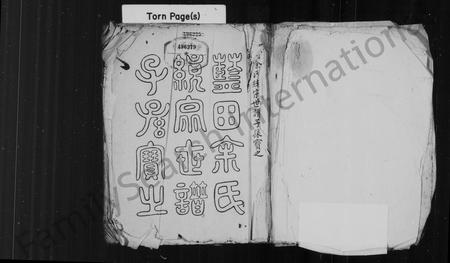 Torn Page(s)
余氏統宗世譜子孫寶之
藍田余氏
統宗世譜
子孫寶之
FamilySearch International